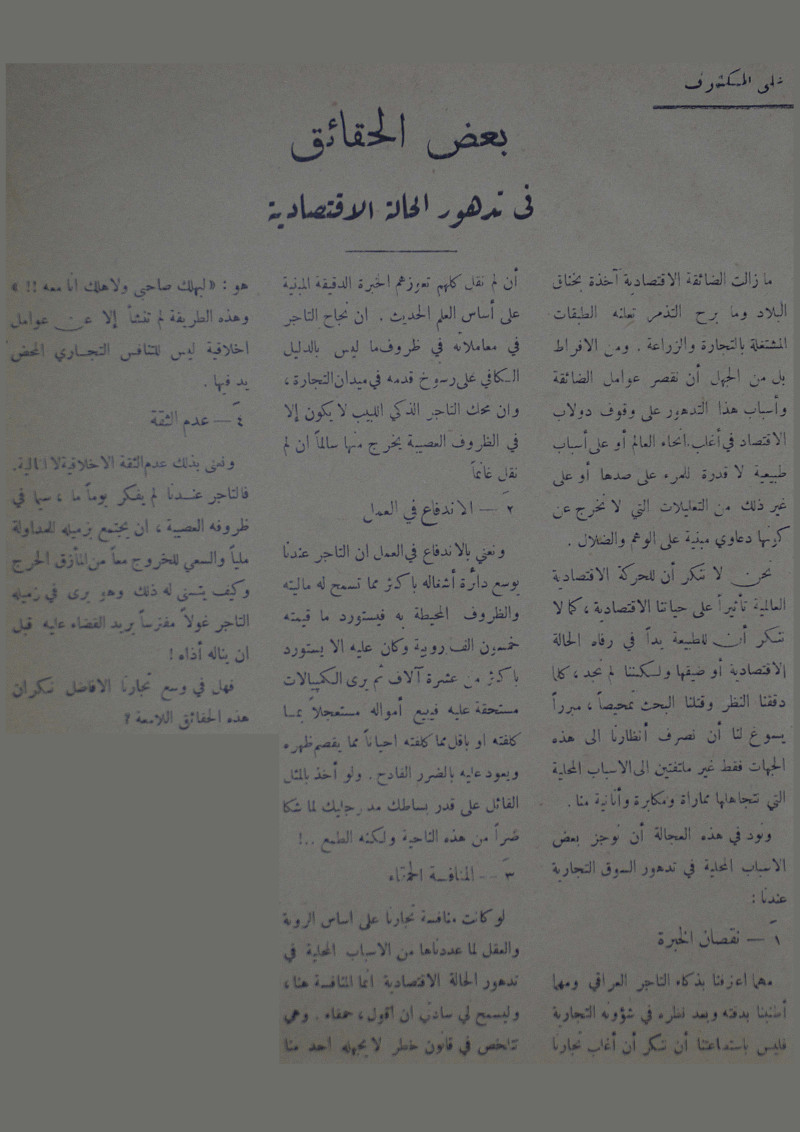 على المكشوف
بعض الحقائق
في تدهور الحالة الاقتصادية
ما زالت الضائقة الاقتصادية آخذة بخناق
البلاد وما برح التذمر تعلنه الطبقات
المشتغلة بالتجارة والزراعة . ومن الافراط
بل من الجهل أن نقصر عوامل الضائقة
وأسباب هذا التدهور على وقوف دولاب
الاقتصاد في أغلب انحاء العالم أو على أسباب
طبيعية لا قدرة للمرء على صدها أو على
غير ذلك من التعليلات التي لا تخرج عن
كونها دعاوي مبنية على الوهم والضلال .
نحن لا ننكر أن للحركة الاقتصادية
العالمية تأثيراً على حياتنا الاقتصادية ، كما لا
ننكر أن للطبيعة يداً في رفاه الحالة
الاقتصادية أو ضيقها ولكننا لم نجد ، كلما
دققنا النظر وقتلنا البحث تمحيصاً ، مبرراً
يسوغ لنا أن نصرف أنظارنا الى هذه
الجهات فقط غير ملتفتين الى الاسباب المحلية
التي نتجاهلها مماراة ومكابرة وأنانية منا .
ونود في هذه العجالة أن نوجز بعض
الاسباب المحلية في تدهور السوق التجارية
عندنا :
١ — نقصان الخبرة
مهما اعترفنا بذكاء التاجر العراقي ومهما
أطنبنا بدقته وبعد نظره في شؤونه التجارية
فليس باستطاعتنا أن ننكر أن أغلب تجارنا
أن لم نقل كلهم تعوزهم الخبرة الدقيقة المبنية
على أساس العلم الحديث . ان نجاح التاجر
في معاملاته في ظروف ما ليس بالدليل
الكافي على رسوخ قدمه في ميدان التجارة ،
وان محك التاجر الذكي اللبيب لا يكون إلا
في الظروف العصيبة يخرج منها سالماً ان لم
نقل غانماً
٢ — الاندفاع في العمل
ونعني بالاندفاع في العمل ان التاجر عندنا
يوسع دائرة أشغاله باكثر مما تسمح له ماليته
والظروف المحيطة به فيستورد ما قيمته
خمسون الف روبية وكان عليه الا يستورد
باكثر من عشرة آلاف ثم يرى الكمبيالات
مستحقة عليه فيبيع أمواله مستعجلاً بما
كلفته او باقل مما كلفته احياناً مما يقصم ظهره
ويعود عليه بالضرر الفادح . ولو أخذ بالمثل
القائل على قدر بساطك مد رجليك لما شكا
ضراً من هذه الناحية ولكنه الطمع ..!
٣ — المنافسة الحمقاء
لو كانت منافسة تجارنا على اساس الروية
والعقل لما عددناها من الاسباب المحلية في
تدهور الحالة الاقتصادية انما المنافسة هنا ،
وليسمح لي سادتي ان أقول ، حمقاء . وهي
تتلخص في قانون خطر لا يجهله احد منا
هو : « ليهلك صاحبي ولاهلك انا معه !! »
وهذه الطريقة لم تنشأ إلا عن عوامل
اخلاقية ليس للتنافس التجاري المحض
يد فيها .
٤ — عدم الثقة
ونعني بذلك عدم الثقة الاخلاقية لا المالية .
فالتاجر عندنا لم يفكر يوماً ما ، سيما في
ظروفه العصيبة ، ان يجتمع بزميله للمداولة
ملياً والسعي للخروج معاً من المأزق الحرج
وكيف يتسنى له ذلك وهو يرى في زميله
التاجر غولاً مفترساً يريد القضاء عليه قبل
ان يناله أذاه !
فهل في وسع تجارنا الافاضل نكران
هذه الحقائق اللامعة ؟